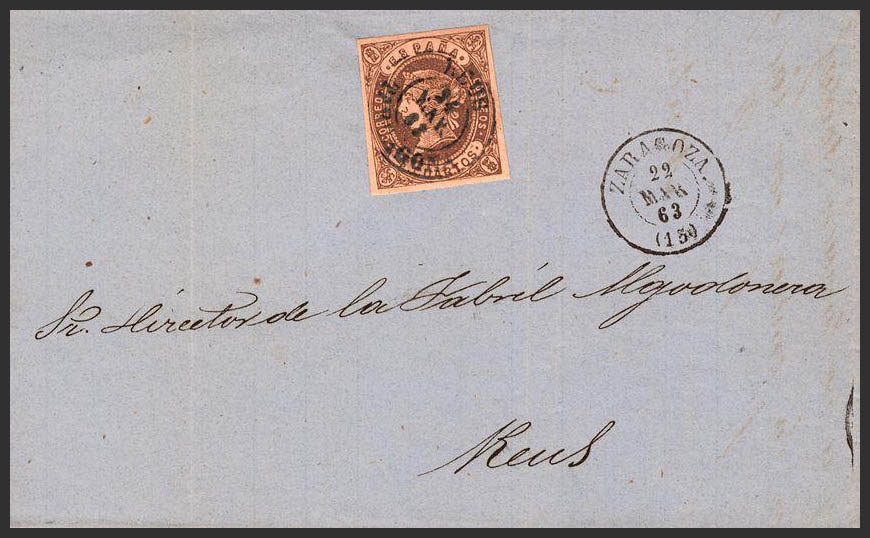 ESPAÑA
CORREOS
CUARTOS
ZARAGOZA.
22
MAR
63
(15)
Sr. Director de la Fabril Algodonera
Reus